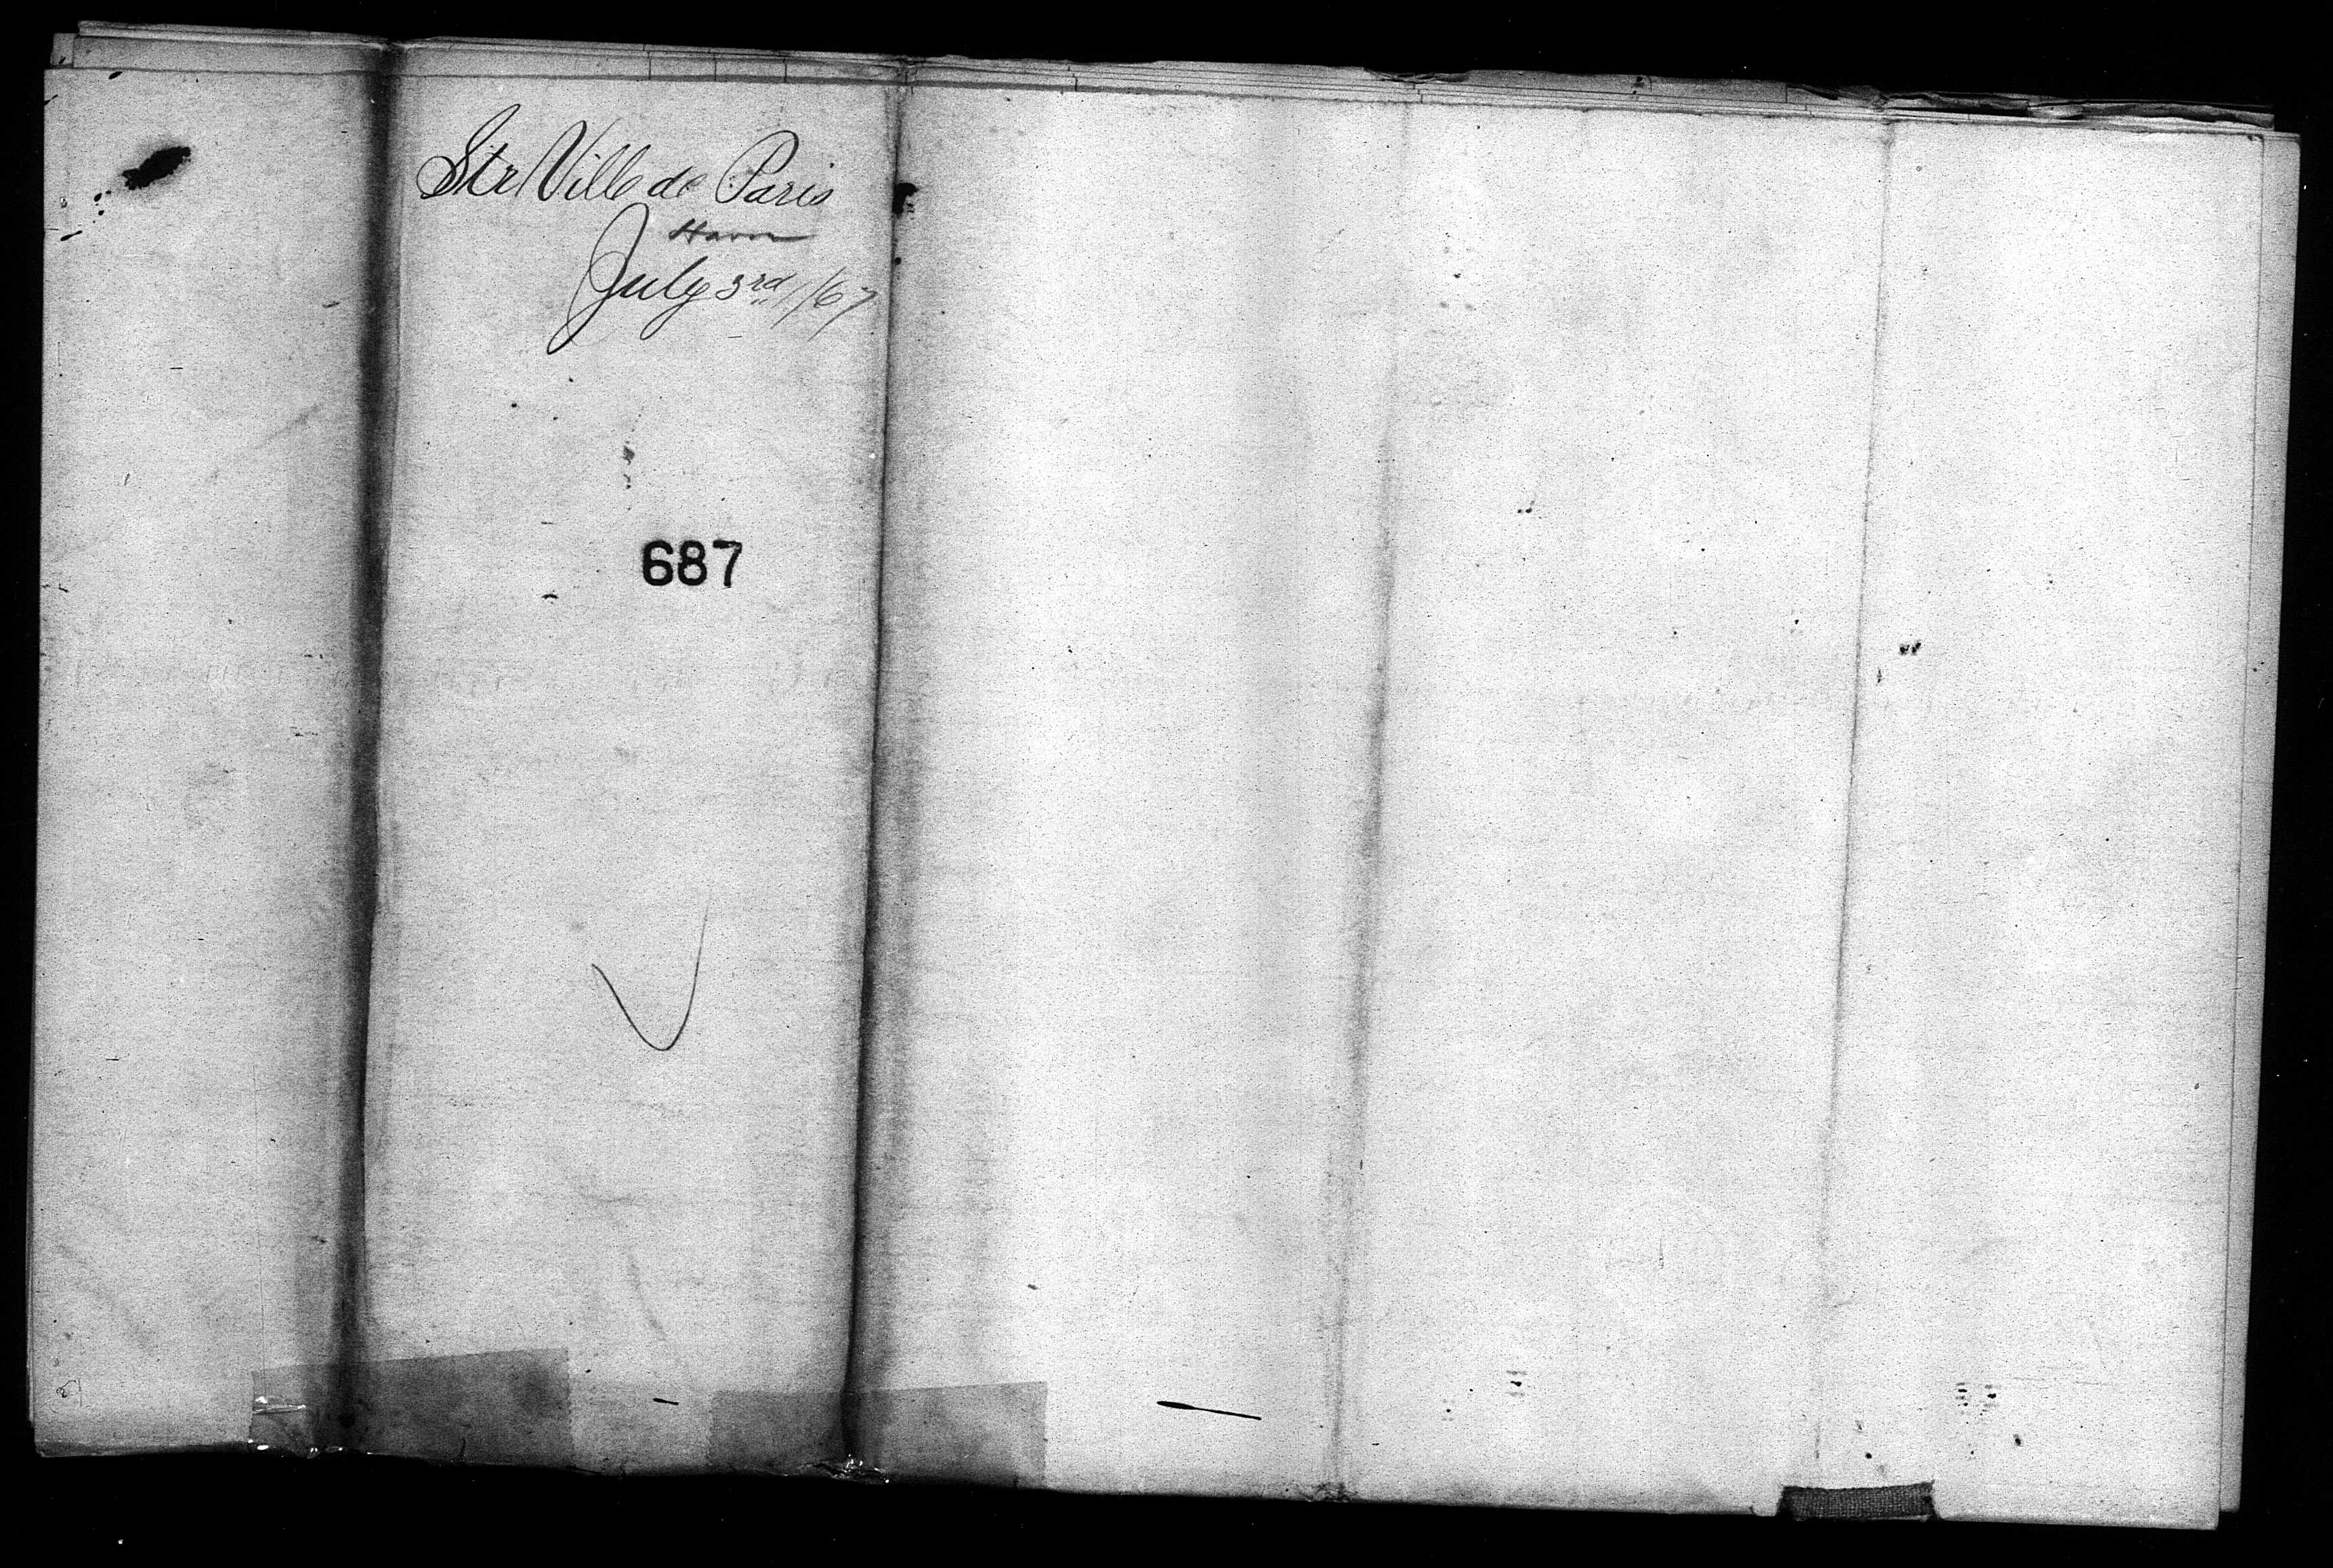 Str Ville de Paris
Havre
July 3rd /67
687